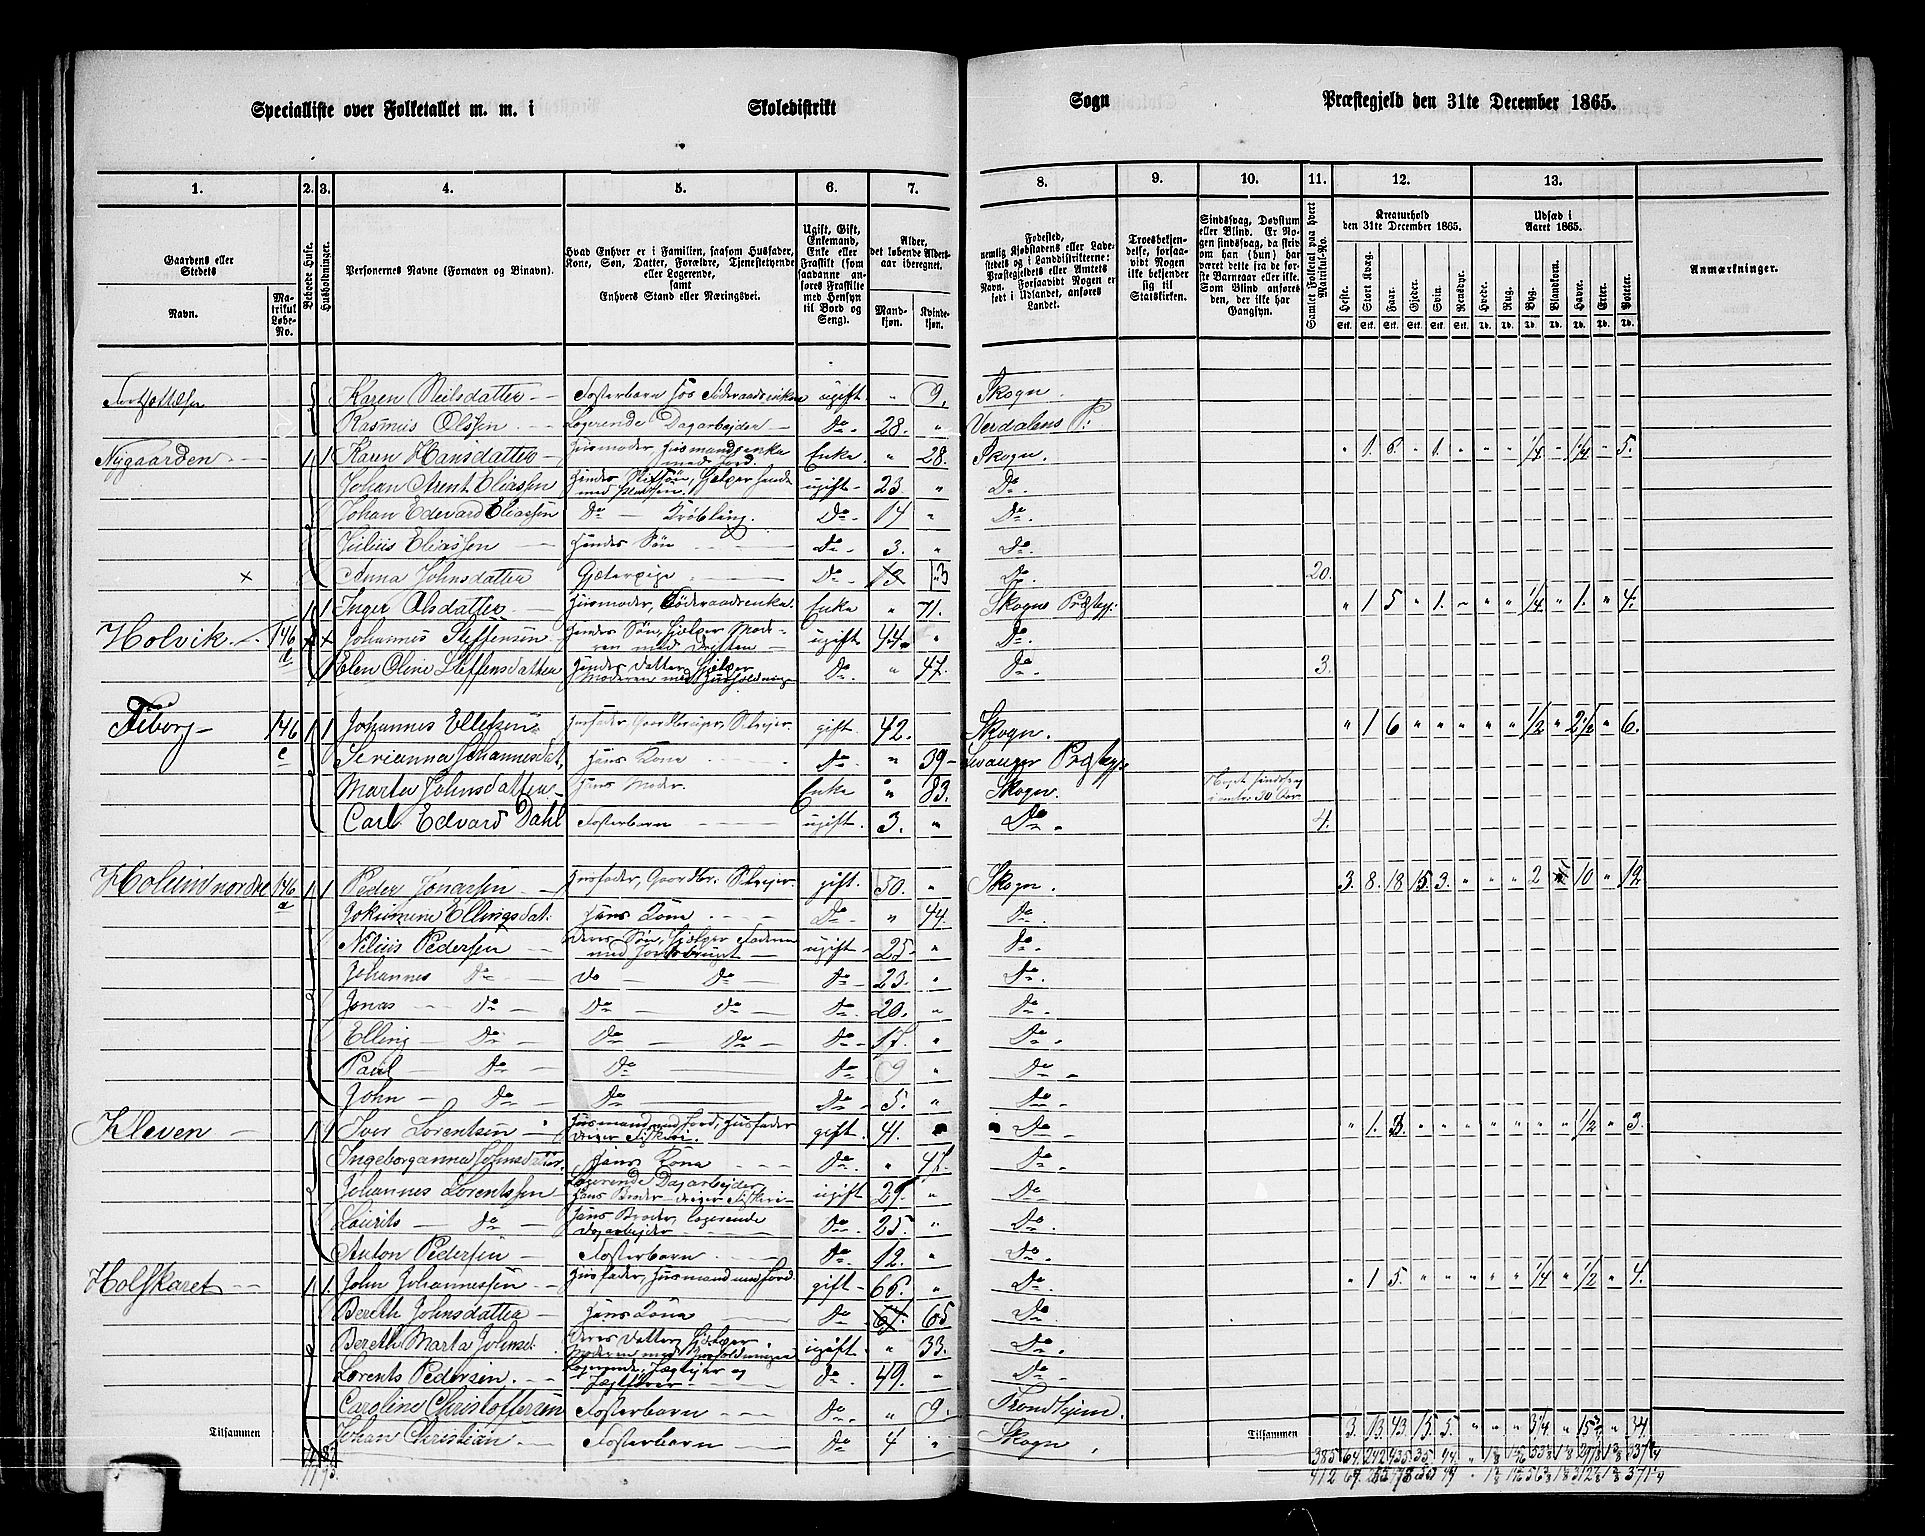 Specialliste over Folketallet m. m. i Skoledistrikt Sogn Præstegjeld den 31te December 1865.
1. 2. 3. 4. 5. 6. 7. 8. 9. 10. 11. 12. 13.
Gaardens eller Stedets Navn. Matrikul Løbe-No. Beboede Huse. Husholdninger. Personernes Navne (Fornavn og Binavn).
Hvad Enhver er i Familien, saasom Husfader, Kone, Søn, Datter, Forældre, Tjenestetyende eller Logerende, samt Enhvers Stand eller Næringsvei.
Ugift, Gift, Enkemand, Enke eller Fraskilt (som saadanne anføres Fraskilte med Hensyn til Bord og Seng).
Alder, det løbende Aldersaar iberegnet. Mandkjøn. Kvindekjøn.
Fødested, nemlig Kjøbstadens eller Ladestedets og i Landdistrikterne: Præstegjeldets eller Amtets Navn. Forsaavidt Nogen er født i Udlandet, anføres Landet.
Troesbekjendelse, forsaavidt Nogen ikke bekjender sig til Statskirken.
Sindssvag, Døvstum eller Blind. Er Nogen sindssvag, da skriv om han (hun) har været dette fra de første Barneaar eller ikke. Som Blind anføres den, der ikke har Gangsyn.
Samlet Folketal paa hvert Matrikul-No.
Kreaturhold den 31te December 1865. Heste. Stort Kvæg. Faar. Gjeder. Svin. Rensdyr. Stk. Stk. Stk. Stk. Stk. Stk.
Udsæd i Aaret 1865. Hvede. Rug. Byg. Blandkorn. Havre. Erter. Poteter. Td. Td. Td. Td. Td. Td. Td.
Anmærkninger.
Fortsættelse Karen Neilsdatter Fosterbarn hos Føderaadsenken ugift " 9. Skogn.
Rasmus Olssen Logerende Dagarbejder Do 28. " Verdalens P:
Nygaarden 1 1 Karen Hansdatter Husmoder, Husmandsenke med Jord. Enke " 28. Skogn. " 1. 6. " 1. " " " 1/4 " 1 1/4 " 5.
Johan Arent Eliassen Hendes Stifsøn, hjelper hende ugift 23. " Do.
Johan Edevard Eliassen Do Do 14 " Do.
Julius Eliassen Hendes Søn Do 3. " Do.
x Anna Johnsdatter Gjeterpige Do 13 13 Do. 20.
1 1 Inger Olsdatter Husmoder, Føderaadsenke. Enke " 71. Skogns Præstgj: " 1 5 " 1. " " " 1/4 " 1. " 4.
Holvik 146 Johannes Steffensen Hendes Søn, hjelper Moderen med Driften ugift 44. " Do.
Elen Oline Steffensdatter Hendes Datter, hjelper Moderen med Husholdning Do " 47. Do 3.
Fiborg 146 c 1 1 Johannes Ellefsen Husfader, Gaardbruger, Selvejer. gift 42. Skogn. " 1 6 " " " " " 1/2 " 2 1/2 " 6.
Serianna Johannesdat. Hans Kone Do " 39 Levanger Præstgj:
Marta Johnsdatter Hans Moder. Enke " 83. Skogn.
Carl Edvard Dahl Fosterbarn ugift 3. " Do. 4.
Holum nordre 146 a 1 1 Peder Jonassen Husfader, Gaardbr. Selvejer. gift 50. " Skogn. 3. 8. 18 15 3. " " " 2 10 " 12
Ellingsdat: Hans Kone Do " 44. Do.
Nelius Pedersen Deres Søn, hjelper Faderen med Jordsbruget ugift 25 " Do.
Johannes Do Do Do Do 23. " Do.
Jonas Do Do Do Do 20. " Do.
Elling Do Do Do Do 17. " Do.
Paul Do Do Do 9 " Do.
John Do Do Do 5. " Do.
Kleven 1 1 Iver Lorentsen Husmand med Jord, Husfader driver Fiskeri. gift 41. Do. " 1. 3. " " " " " " " 1/2 " 3.
Ingeborganna Johnsdatter. Hans Kone Do. " 47. Do.
Johannes Lorentssen Logerende Dagarbejder, Hans Broder driver Fiskeri ugift 29. " Do
Laurits Do Hans Broder, logerende Dagarbejder Do 25. " Do.
Anton Pedersen Fosterbarn Do 12. " Do.
Holskaret 1 1 John Johannessen Husfader, Husmand med Jord gift 66. " Do. " 1 5. " " " " " 1/4 " 1/2 " 4.
Bereth Johnsdatter Hans Kone Do 64. 65 Do.
Bereth Marta Johnsd. Deres Datter, hjelper Moderen med Husholdningen ugift " 33. Do.
Lorents Pedersen. Logerende, og Do 49. " Do
Caroline Christoffersen Fosterbarn Do " 9. Trondhjem.
Johan Christian Fosterbarn Do 4 " Skogn.
Tilsammen Tilsammen 3. 13. 43. 15. 5. " " " 3 1/4 " 15 3/4 " 34.
385 64. 242 435 35. 44.
412 67.